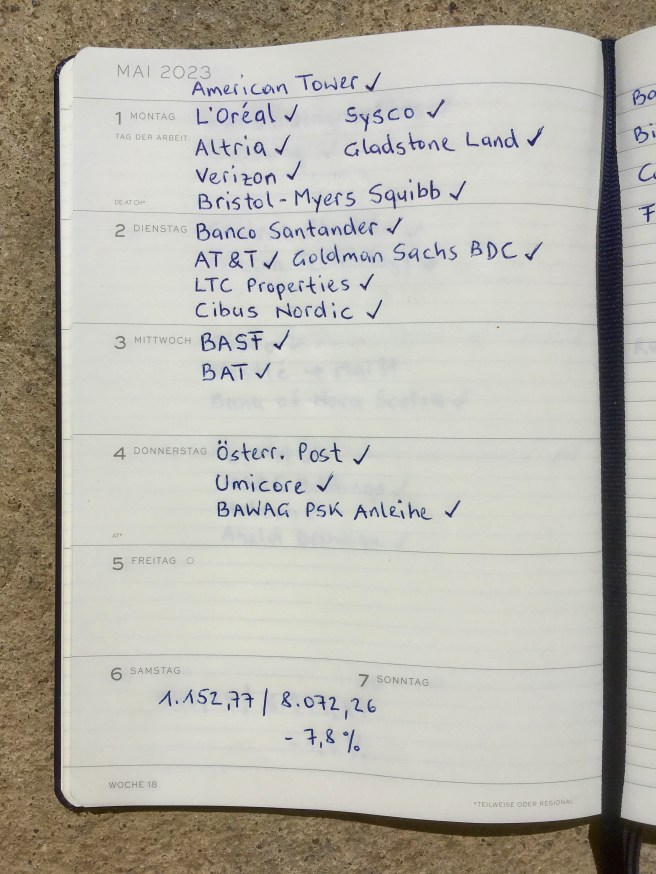 MAI 2023
American Tower ✓
1 MONTAG L'Oréal ✓ Sysco ✓
TAG DER ARBEIT
Altria ✓ Gladstone Land ✓
Verizon ✓
DE AT CH*
Bristol-Myers Squibb ✓
2 DIENSTAG Banco Santander ✓
AT&T ✓ Goldman Sachs BDC ✓
LTC Properties ✓
Cibus Nordic ✓
3 MITTWOCH BASF ✓
BAT ✓
4 DONNERSTAG Österr. Post ✓
Umicore ✓
BAWAG PSK Anleihe ✓
AT*
5 FREITAG
6 SAMSTAG
7 SONNTAG
1.152,77 / 8.072,26
- 7,8 %
WOCHE 18
*TEILWEISE ODER REGIONAL